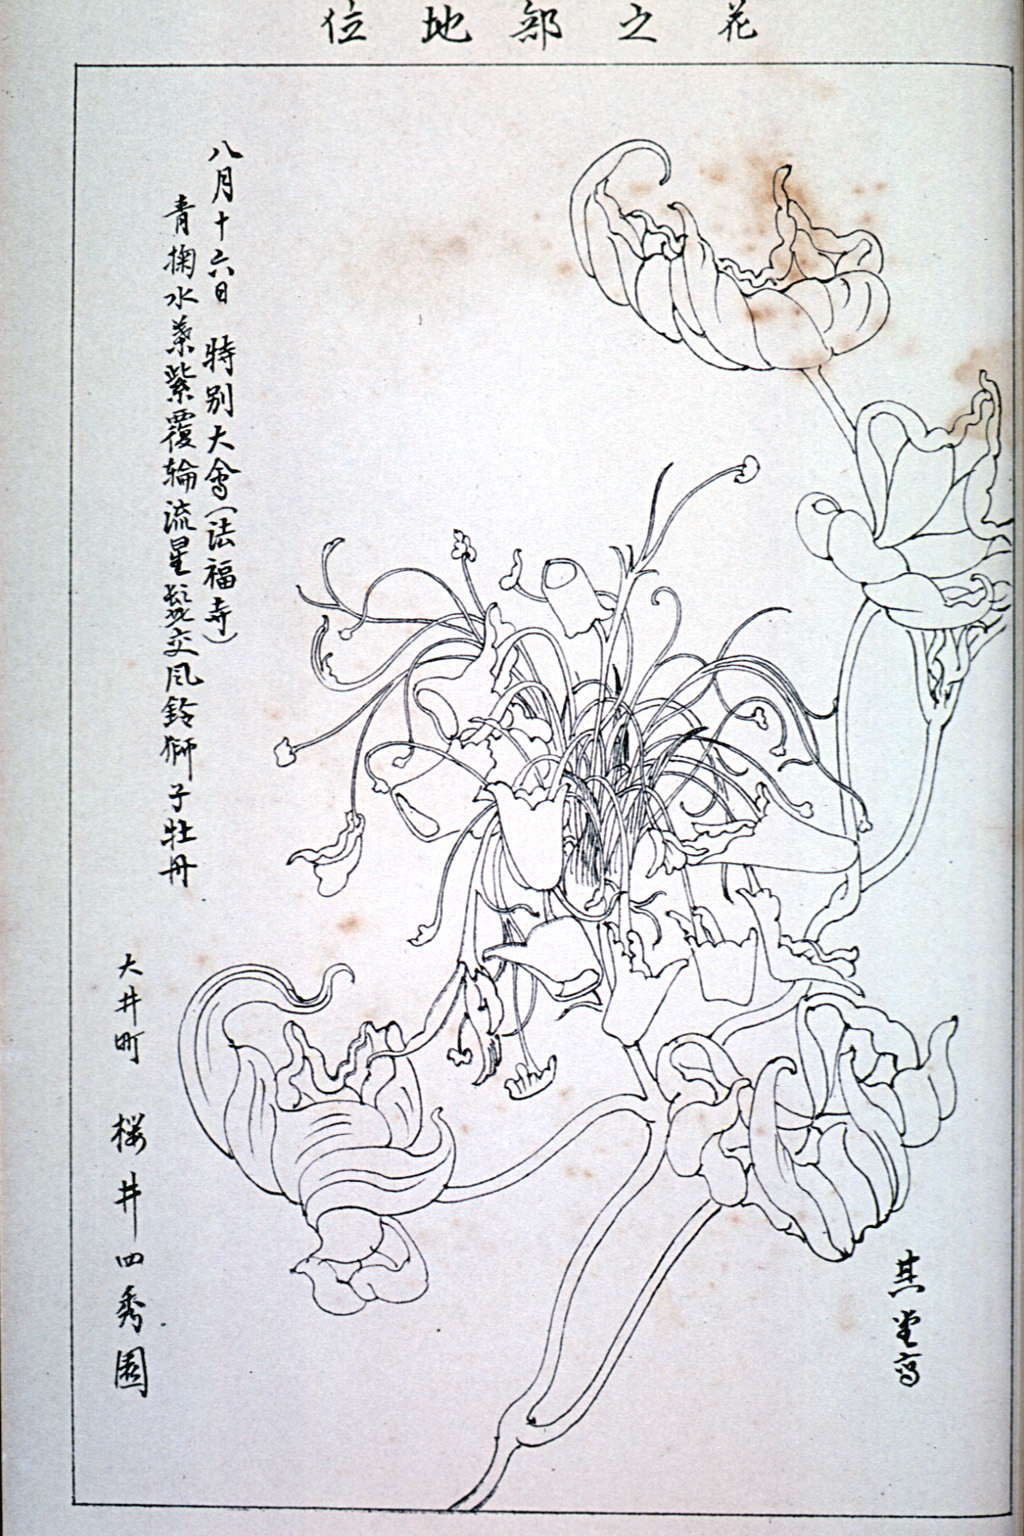 花之部地位
八月十六日 特別大會(法福寺)
青掬水葉紫覆輪流星髭交風鈴獅子牡丹
大井町 桜井四秀園
其堂写